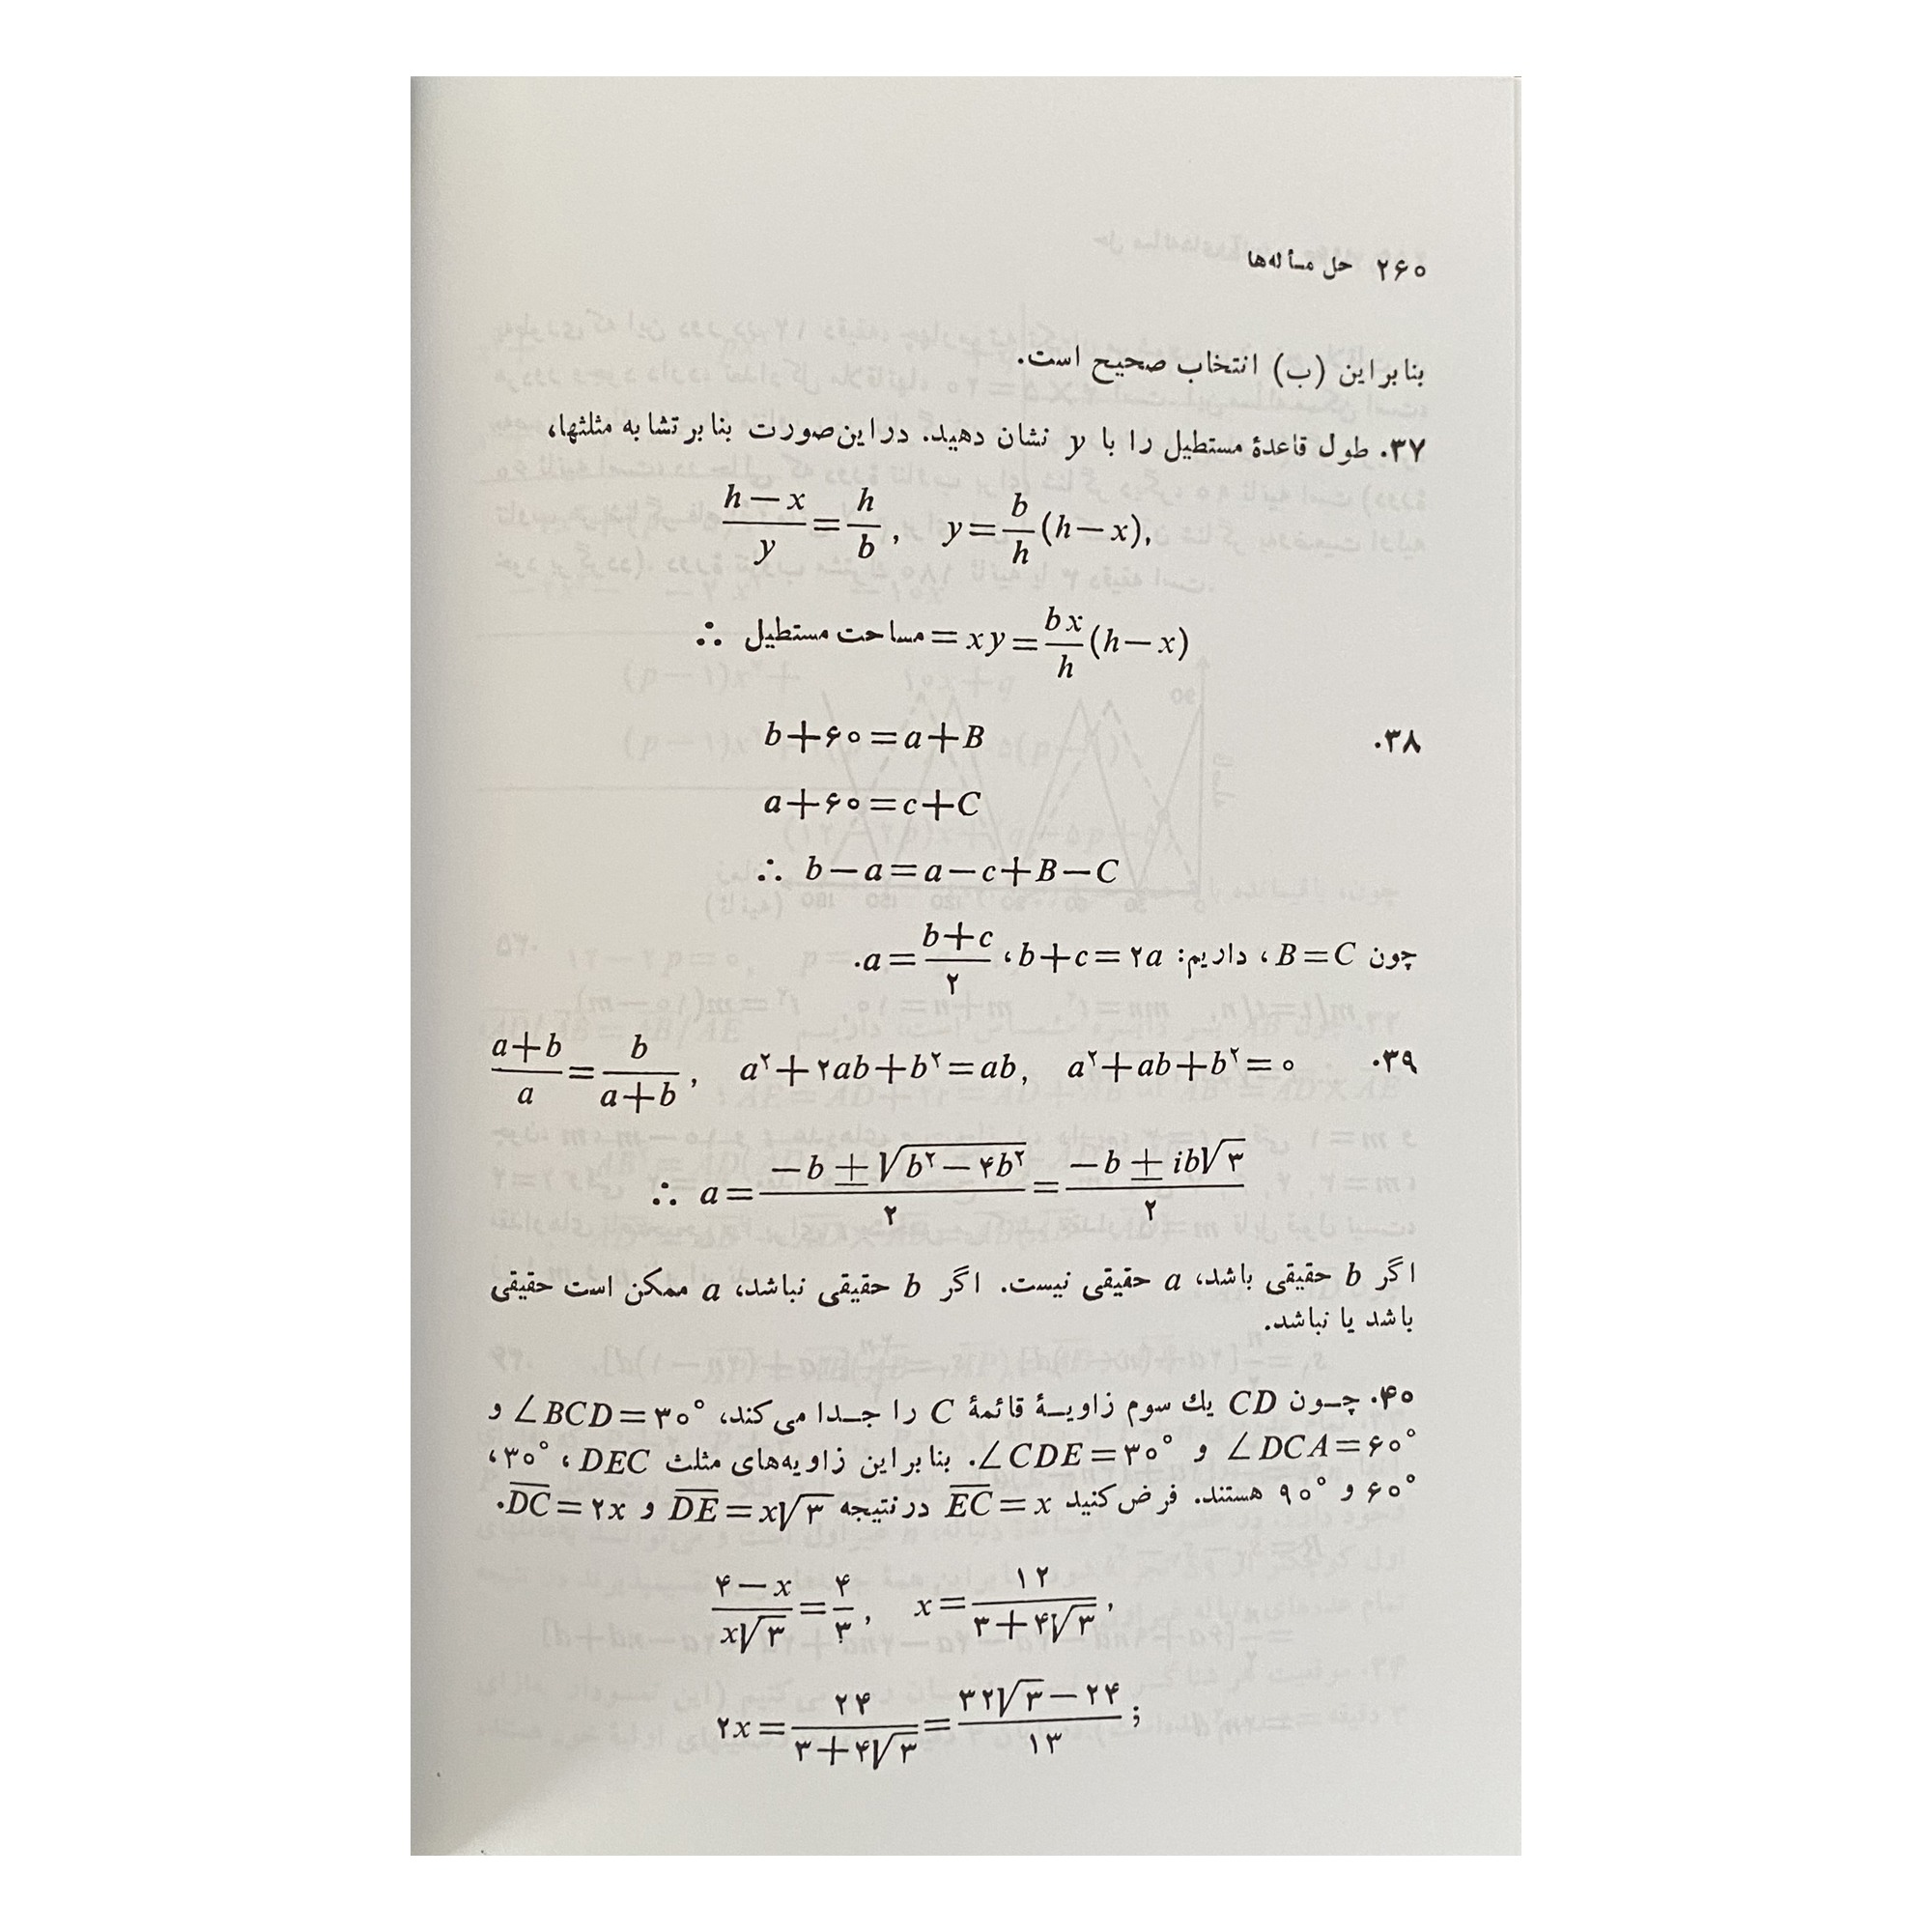 ۲۶۰ حل مسأله‌ها
بنابراین (ب) انتخاب صحیح است.
۳۷. طول قاعدهٔ مستطیل را با y نشان دهید. دراین‌صورت بنابر تشابه مثلثها،
(h−x)/y = h/b , y = b/h (h−x),
∴ مساحت مستطیل = xy = bx/h (h−x)
۳۸. b+۶۰=a+B
a+۶۰=c+C
∴ b−a=a−c+B−C
چون B=C، داریم: b+c=۲a، a=(b+c)/۲.
۳۹. (a+b)/a = b/(a+b) , a²+۲ab+b²=ab, a²+ab+b²=۰
∴ a = (−b ± √(b²−۴b²))/۲ = (−b ± ib√۳)/۲
اگر b حقیقی باشد، a حقیقی نیست. اگر b حقیقی نباشد، a ممکن است حقیقی
باشد یا نباشد.
۴۰. چون CD یك سوم زاویهٔ قائمهٔ C را جدا می‌کند، ∠BCD=۳۰° و
∠DCA=۶۰° و ∠CDE=۳۰°. بنابراین زاویه‌های مثلث DEC، ۳۰°،
۶۰° و ۹۰° هستند. فرض کنید EC=x درنتیجه DE=x√۳ و DC=۲x.
(۴−x)/(x√۳) = ۴/۳ , x = ۱۲/(۳+۴√۳) ,
۲x = ۲۴/(۳+۴√۳) = (۳۲√۳−۲۴)/۱۳ ;